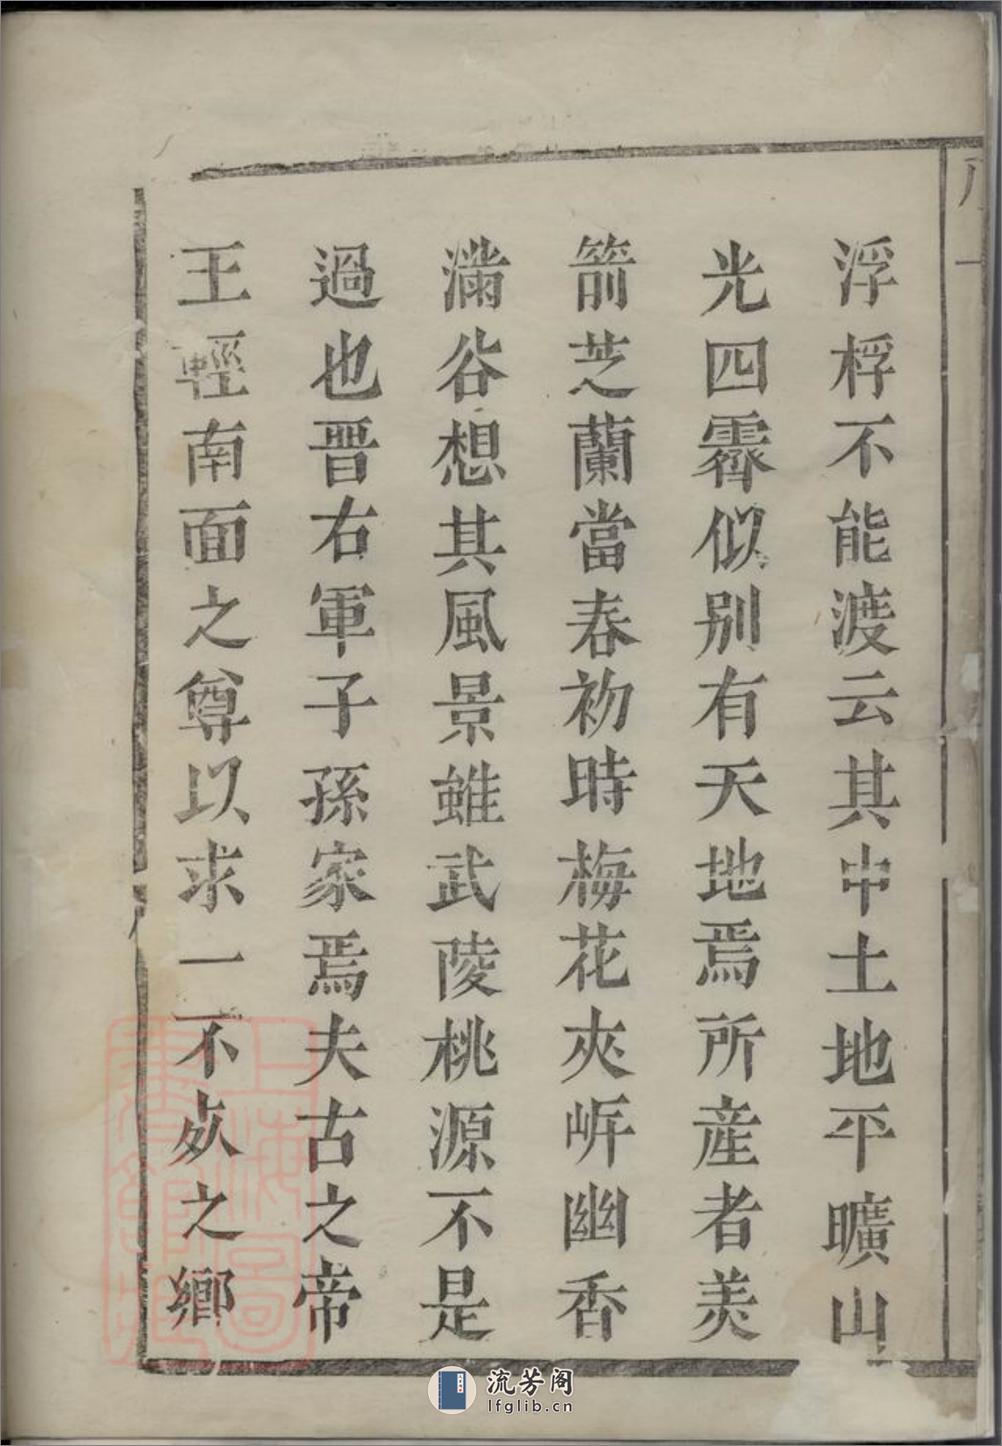 浮桴不能渡云其中土地平曠山
光四霽似别有天地焉所産者美
箭芝蘭當春初時梅花夾岍幽香
滿谷想其風景雖武陵桃源不是
過也晋右軍子孫家焉夫古之帝
王輕南面之尊以求一不奴之鄉
上海圖書館藏
流芳阁
lfglib.cn